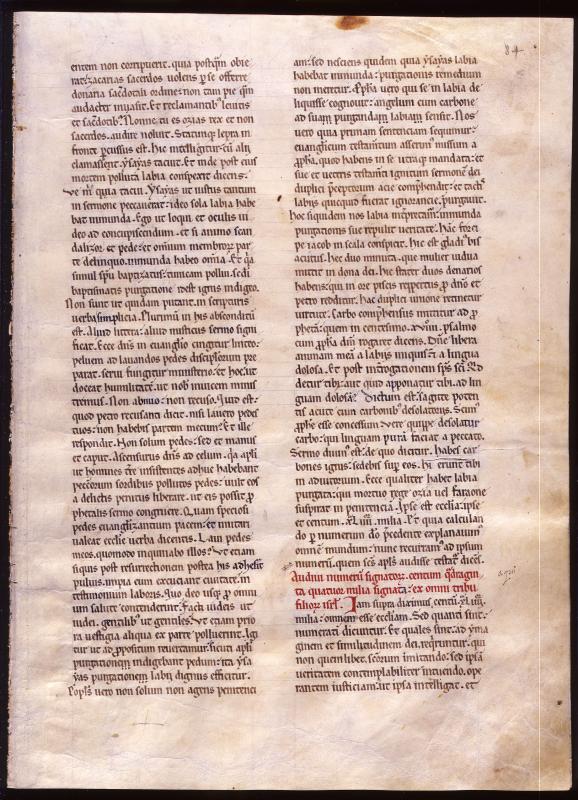 84
entem non corripuerit. quia postqᷓm obie
rat ezacarias sacerdos uolens ꝑ se offerre
donaria sacẽdotali ordine: non tam pie qᷓm
audacter inuasit. Et reclamantibꝰ leuitis
et sacdotibꝰ. Nonne tu es ozias rex et non
sacerdos. audire noluit. Statimqꝫ lepra in
fronte ꝑcussus est.
mortem polluta labia conspexit dicens.
Ve m̃ quia tacui. Ysayas ut iustus tantum
in sermone peccauerat: ideo sola labia habe
bat inmunda. Ego ut loqui et oculis ui
deo ad concupiscendum. et si animo scan
dalizor et pede: et omnium membrorꝝ par
te delinquo. inmunda habeo omnia. Et qᷓa
simul spũ baptizatus: tunicam pollui. sedi
baptismatis purgatione idest ignis indigeo.
Non sunt ut quidam putant. in scripturis
uerba simplicia. Plurimũ in his absconditũ
est. Aliud littera: aliud misticus sermo signi
ficat. Ecce dñs in euanglio cingitur linteo:
peluem ad lauandos pedes discipulorum pre
parat. serui fungitur ministerio. et hoc. ut
doceat humilitatẽ. ut nob̃ inuicem minis
tremus. Non abnuo: non recuso. Quid est:
quod petro recusanti dicit. nisi lauero pedes
tuos: non habebis partem mecum? Et ille
respondit. Non solum pedes: sed et manus
et caput. Ascensurus dñs ad celum. qᷓa apłi
ut homines terre insistentes adhuc habebant
peccorum sordibus pollutos pedes: uult eos
a delictis penitus liberare. ut eis possit ꝓ
phetalis sermo congruere. Quam speciosi
pedes euanglizantium pacem: et imitari
ualeat ecclie uerba dicentis. Laui pedes
meos. quomodo inquinabo illos? Vt etiam
siquis post resurrectionem postea his adhesit
puluis. impia eum excuciant ciuitate. in
testimonium laboris. Quo deo usqꝫ ꝓ omni
um salute contenderint. facti iudeis ut
iudei. gentilibꝰ ut gentiles. Vt etiam prio
ra uestigia aliqua ex parte polluerint. Igi
tur ut ad ꝓpositum reuertamur. sicuti apłi
purgationem indigebant pedum: ita ysa
yas purgationem labij dignus efficitur.
Popłs uero non solum non agens penitenci
am: sed nesciens quidem quia ysayas labia
habebat inmunda: purgationis remedium
non meretur. Ꝓpha uero qui se in labia de
liquisse cognouit: angelum cum carbone
ad suam purgandam labiam sensit. Nos
uero quia primam sentenciam sequimur:
euanglicum testamtum asserimus missum a
ꝓpha. quod habens in se utraqꝫ mandata: et
sue et ueteris testamti ignitum sermonẽ dei
duplici ꝑceptorum acie comꝑhendit: et tactꝭ
labijs quicquid fuerat ignorancie. ꝑurgauit.
Hoc siquidem nos labia inꝑretamur. inmunda
purgationis sue repulit ueritate. Hãc forci
pe iacob in scala conspicit. Hic est gladiꝰ bis
acutus. hec duo minuta. que mulier uidua
mittit in dona dei. hic stater duos denarios
habens: qui in ore piscis reꝑitus ꝓ dño et
petro redditur. Hac duplici unione retinetur
uirtute. Carbo comprehensus mittitur ad ꝓ
phetã: quem in centesimo. xviiii. psalmo
cum ꝓpha dñm rogaret dicens. Dñe libera
animam meã a labijs iniquis: et a lingua
dolosa. Et post interrogationem sps sci. Qd
detur tibi: aut quid apponatur tibi. ad lin
guam dolosã? Dictum est. sagitte poten
tis acute cum carbonibꝰ desolatoriis. Scimꝰ
ꝓphe esse concessum. Vere quippe desolatur
carbo: qui linguam purã faciat a peccato.
Sermo diuinꝰ est: de quo dicitur. habes car
bones ignis: sedebis suꝑ eos. hi erunt tibi
in adiutorium. Ecce qualiter habet labia
purgata: qui mortuo rege ozia uel faraone
suspirat in penitencia. Ipse est ecclia: ipse
et centum. xl. iiii. milia. Et quia calculan
do ꝓ numerum dñi ꝑcedente explanauimꝰ
omnẽ mundum: nunc recurramꝰ ad ipsum
numerũ. quem scs apłs audisse testatꝰ dicẽs.
Audiui numerũ signatorꝝ. centum qᷓdragin
ta quatuor milia signata: ex omni tribu
filiorꝝ isrł. Iam supra diximus. centũ. xl. iiii.
milia: omnem esse eccliam. Sed quanti sint:
numerati dicuntur. Et quales sint: ad yma
ginem et similitudinem dei. reqͥruntur. qui
non quemlibet scorum imitando: sed ipsã
ueritatem contemplabiliter intuendo. ope
rantem iusticiam: ut ipsa intelligat. et